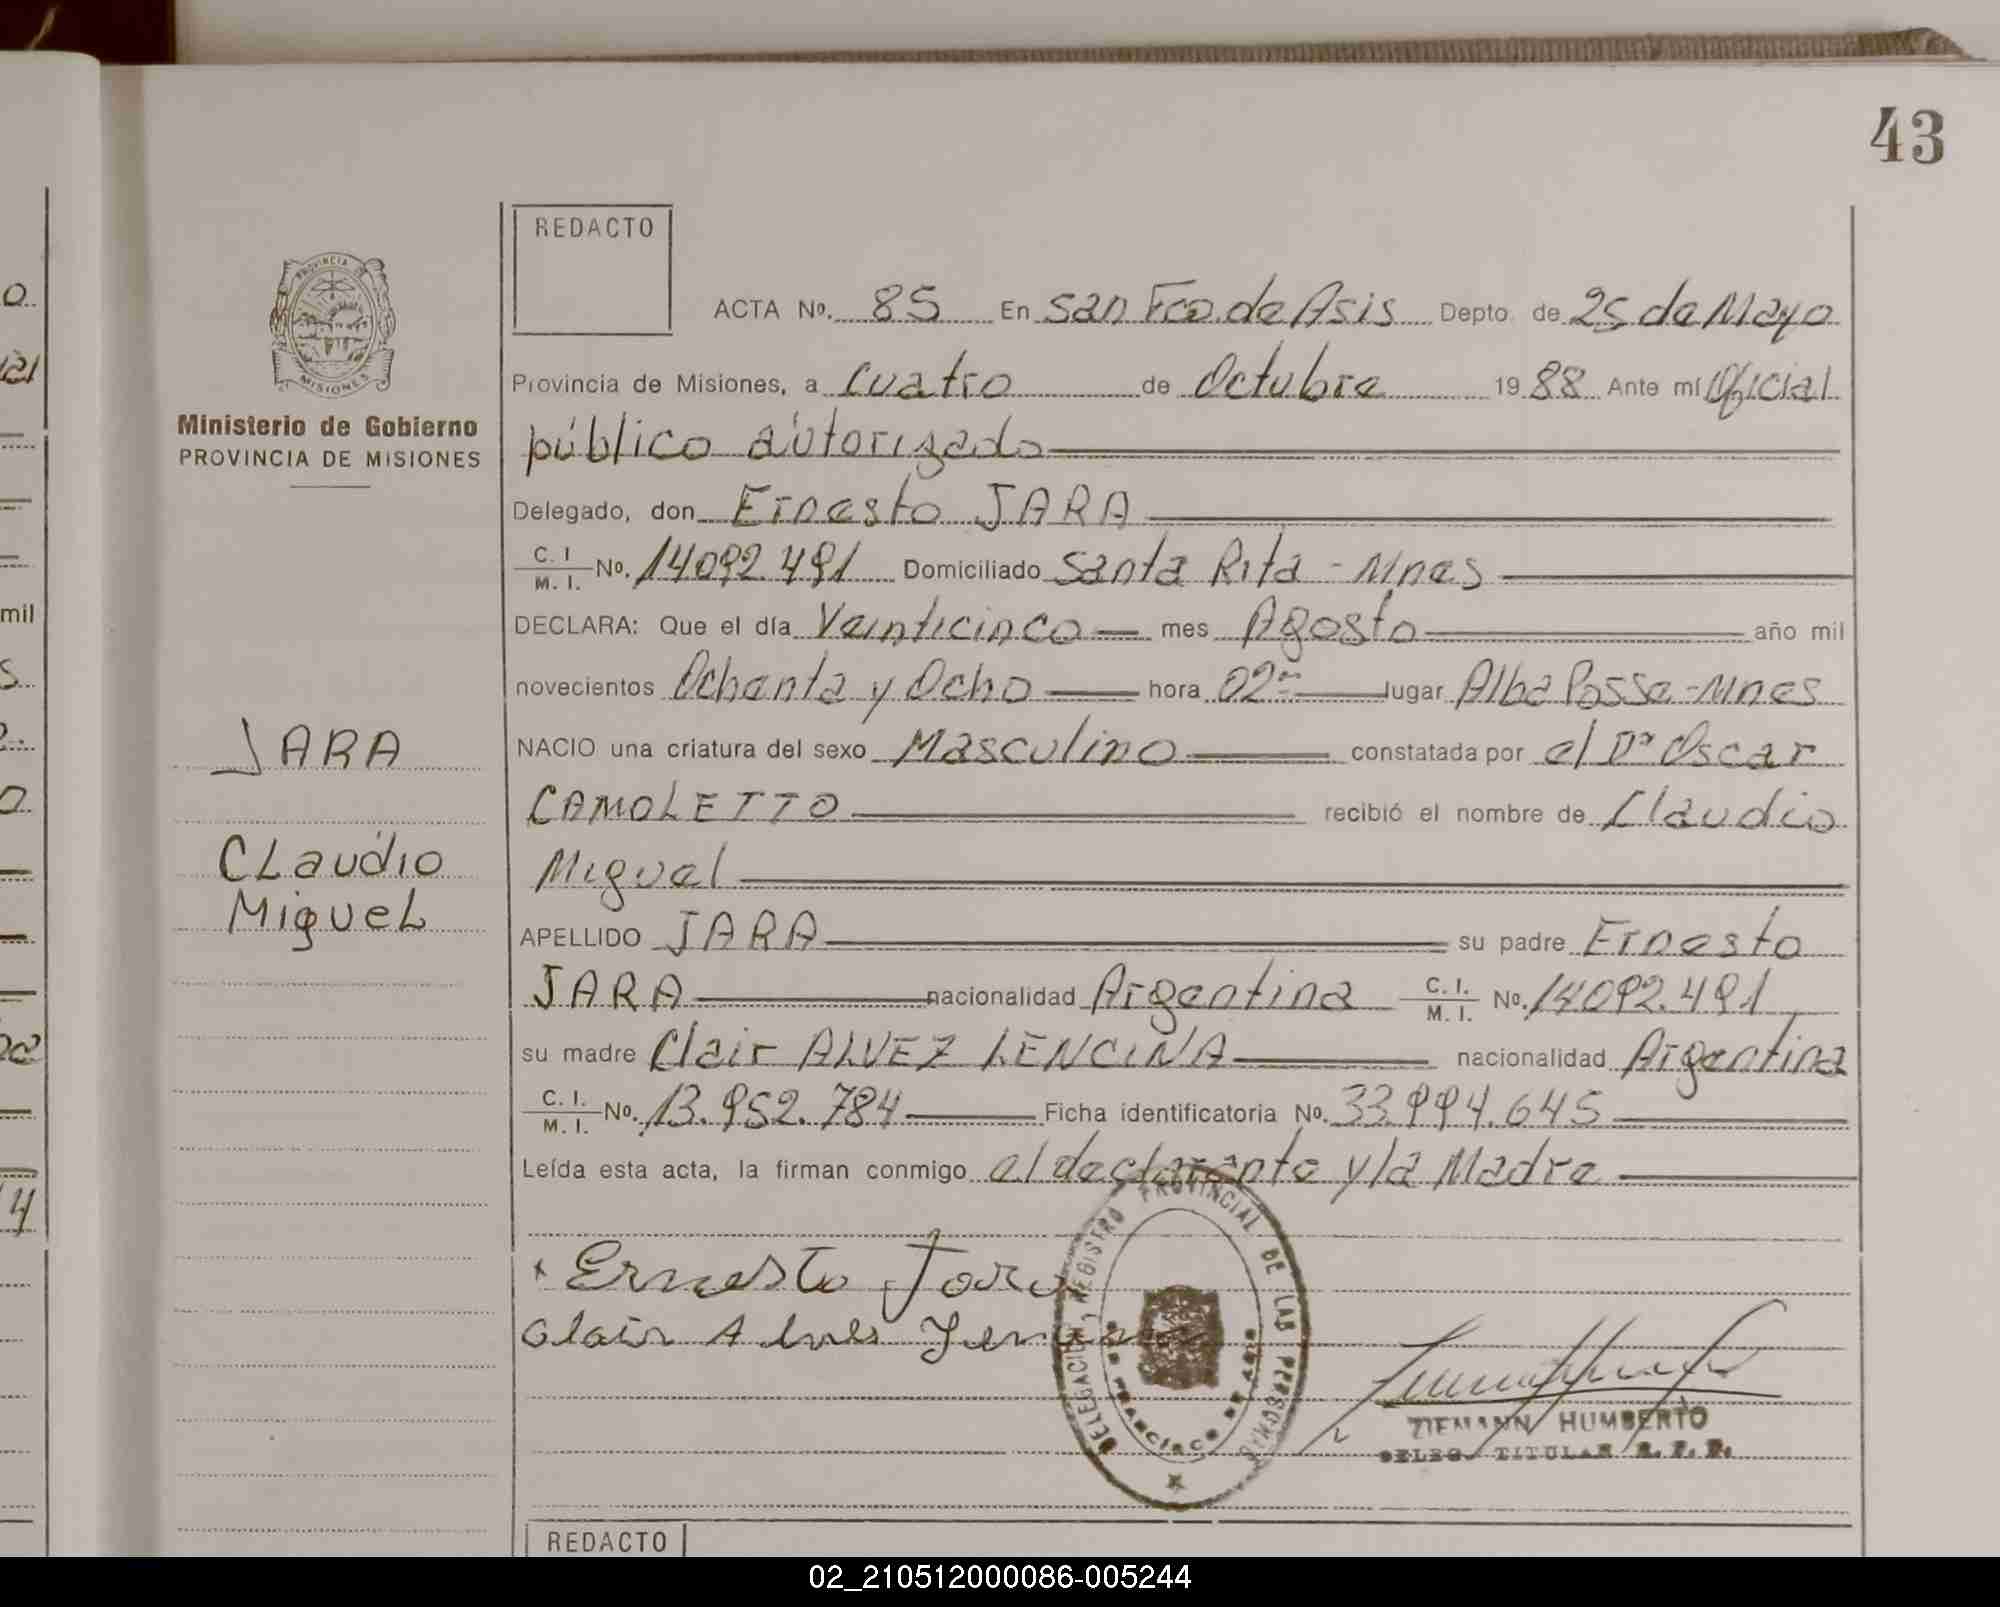 43
REDACTO
ACTA Nº. 85 En San Fco. de Asis Depto. de 25 de Mayo
Provincia de Misiones, a Cuatro de Octubre 1988 Ante mí Oficial
público autorizado
Delegado, don Ernesto JARA
C. I. / M. I. Nº. 14092.491 Domiciliado Santa Rita - Mnes
DECLARA: Que el día Veinticinco mes Agosto año mil
novecientos Ochenta y Ocho hora 02 lugar Alba Posse - Mnes
NACIO una criatura del sexo Masculino constatada por el Dr Oscar
CAMOLETTO recibió el nombre de Claudio
Miguel
APELLIDO JARA su padre Ernesto
JARA nacionalidad Argentina C. I. / M. I. Nº. 14092.491
su madre Clair ALVEZ LENCINA nacionalidad Argentina
C. I. / M. I. Nº. 13.952.784 Ficha identificatoria Nº. 33.994.645
Leída esta acta, la firman conmigo el declarante y la Madre
Ernesto Jara
Clair Alves
DELEGACION REGISTRO PROVINCIAL DE LAS PERSONAS
FRANCISCO DE ASIS
ZIEMANN HUMBERTO
DELEG. TITULAR R. P. P.
REDACTO
PROVINCIA DE
MISIONES
Ministerio de Gobierno
PROVINCIA DE MISIONES
JARA
CLaudio
MigueL
mil
02_210512000086-005244